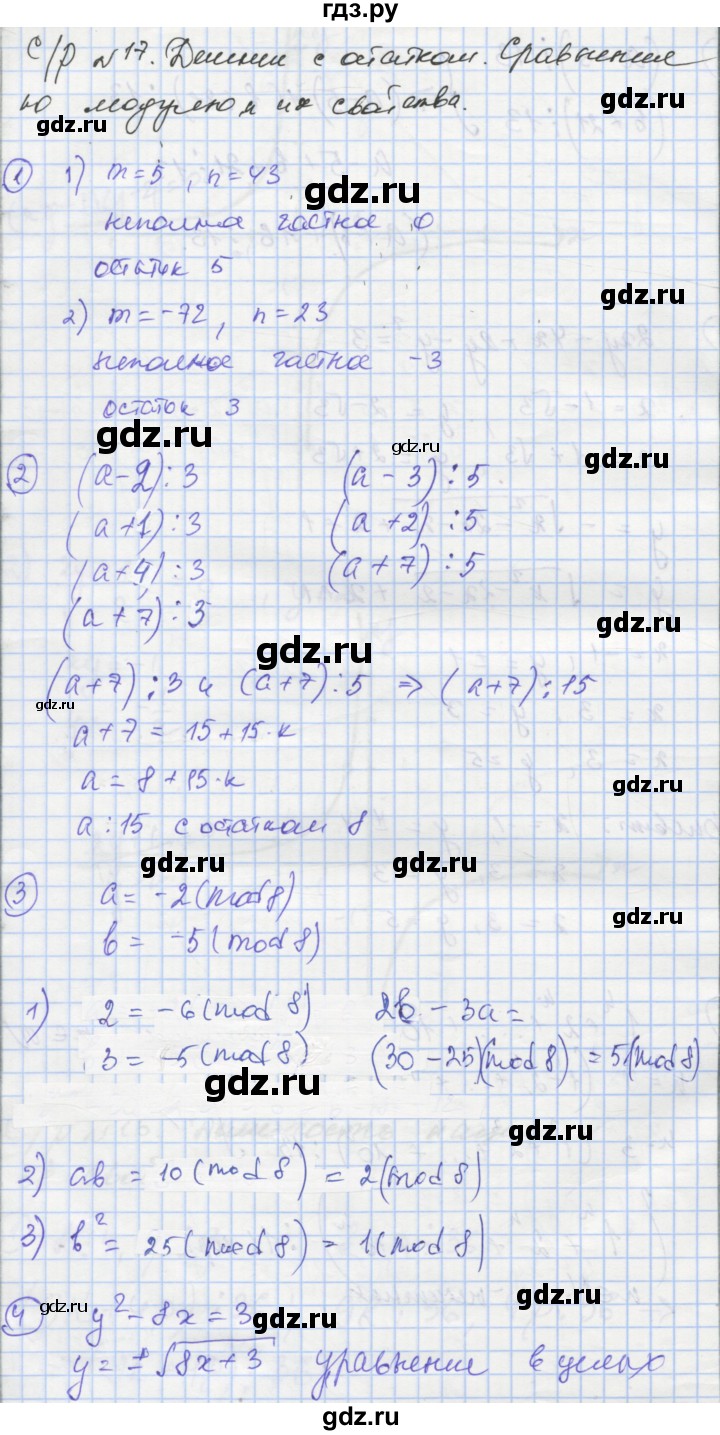 гдз.ру
С/р №17. Деление с остатком. Сравнение
по модулю и их свойства.
gdz.ru
gdz.ru
1 1) m=5, n=43
gdz.ru
неполное частное 0
остаток 5
gdz.ru
2) m=-72, n=23
неполное частное -3
остаток 3
gdz.ru
gdz.ru
gdz.ru
2 (a-2)⋮3 (a-3)⋮5
(a+1)⋮3 (a+2)⋮5
(a+4)⋮3 (a+7)⋮5
(a+7)⋮3
gdz.ru
gdz.ru
(a+7)⋮3 и (a+7)⋮5 ⇒ (a+7)⋮15
gdz.ru
a+7 = 15+15·k
a = 8+15·k
gdz.ru
a:15 с остатком 8
gdz.ru
gdz.ru
3 a = -2(mod 8)
gdz.ru
b = -5(mod 8)
1) 2 = -6(mod 8) 2b - 3a =
3 = -5(mod 8) (30-25)(mod 8) = 5(mod 8)
gdz.ru
gdz.ru
2) ab = 10(mod 8) = 2(mod 8)
3) b² = 25(mod 8) = 1(mod 8)
gdz.ru
gdz.ru
4 y²-8x=3
gdz.ru
y=±√8x+3 уравнение в целых
gdz.ru